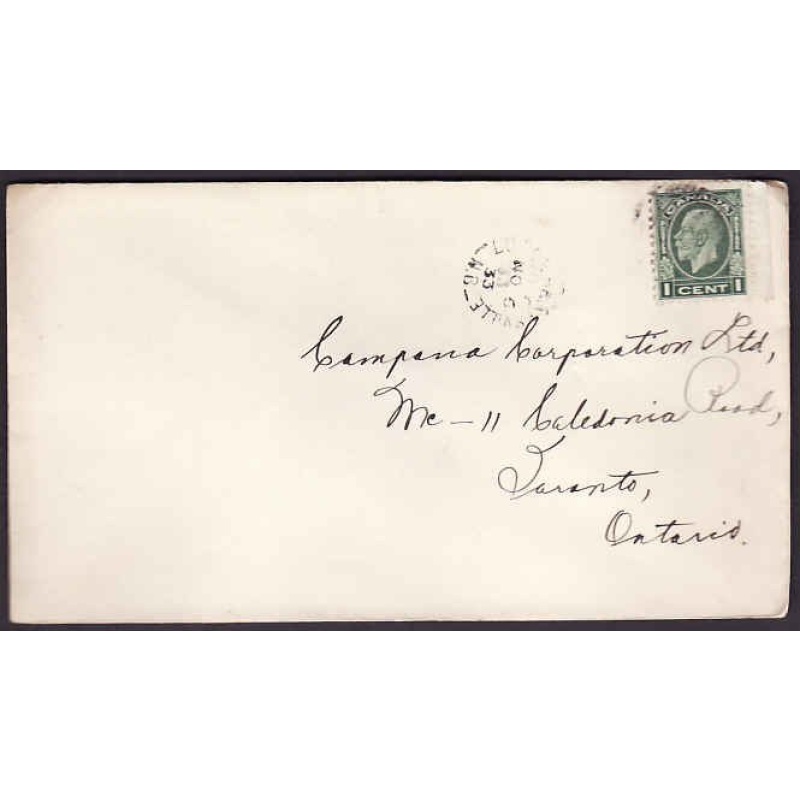 CANADA
1 CENT 1
N.B.
NO
33
Campana Corporation Ltd,
Mc-11 Caledonia Road,
Toronto,
Ontario.